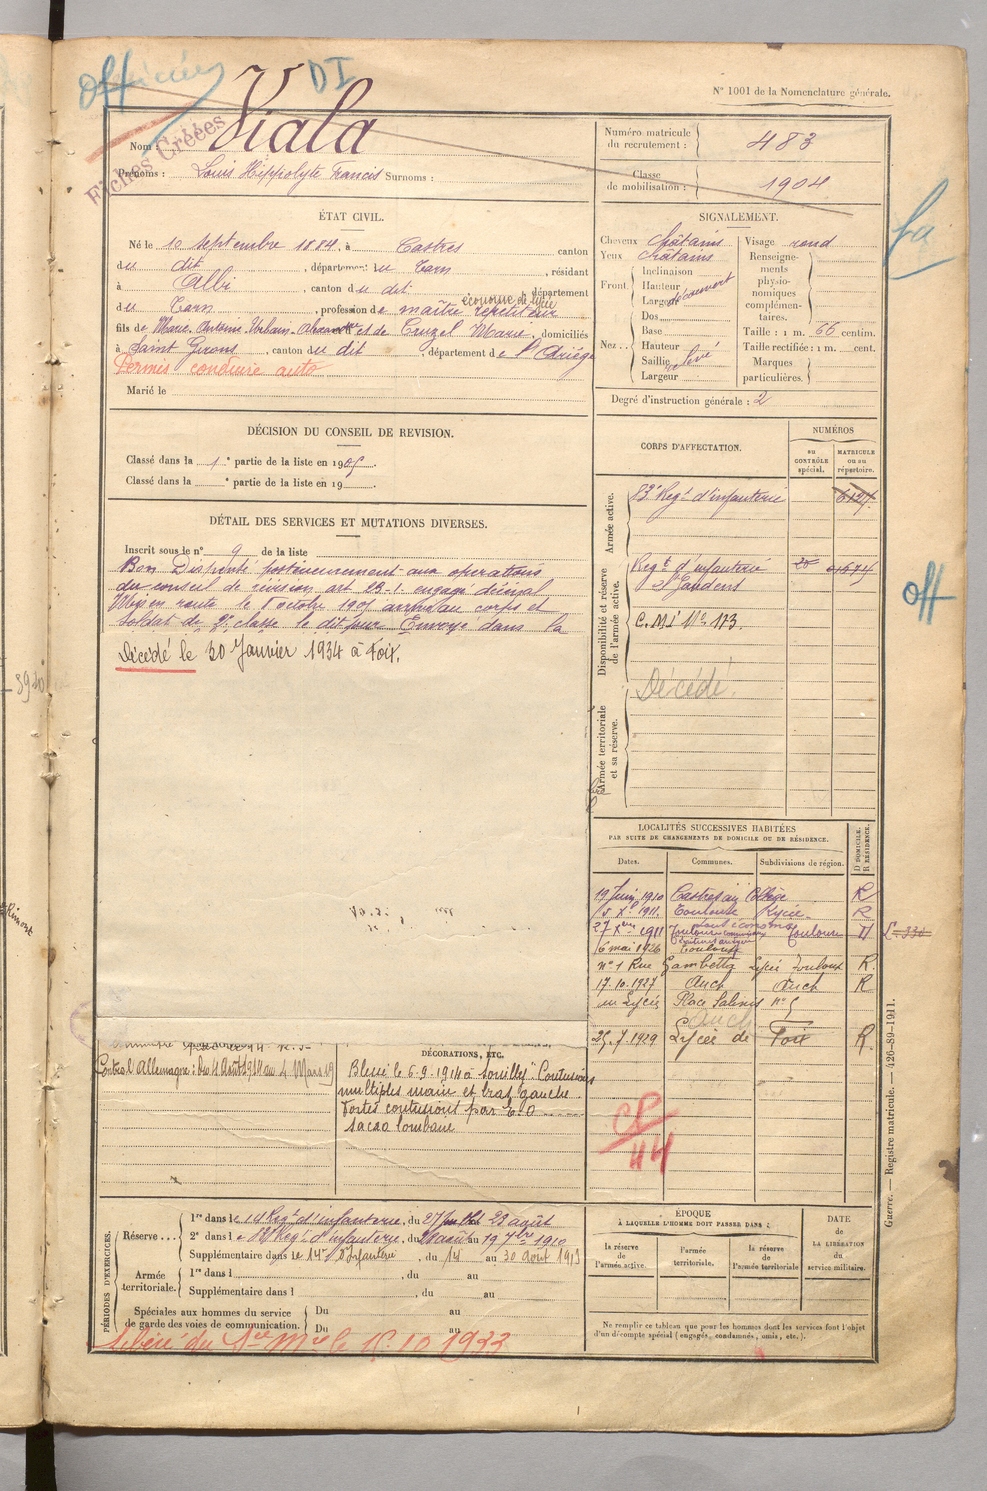 Officier
DI
N° 1001 de la Nomenclature générale.
Fiches Créées
Nom : Viala
Prénoms : Louis Hippolyte Francis Surnoms :
Numéro matricule du recrutement : 483
Classe de mobilisation : 1904
ÉTAT CIVIL.
Né le 10 septembre 1884, à Castres canton
du dit , département du Tarn , résidant
à Albi , canton du dit , département
économe de lycée
du Tarn , profession de maître répétiteur
fils de Marie Antoine Urbain Alexandre et de Cruzel Marie, domiciliés
à Saint Girons , canton du dit , département de l'Ariège
Permis conduire auto
Marié le
SIGNALEMENT.
Cheveux châtains
Yeux châtains
Front. Inclinaison
Hauteur
Largeur découvert
Nez. Dos
Base
Hauteur
Saillie relevé
Largeur
Visage rond
Renseignements physionomiques complémentaires.
Taille : 1 m. 66 centim.
Taille rectifiée : 1 m. cent.
Marques particulières.
Degré d'instruction générale : 2
DÉCISION DU CONSEIL DE REVISION.
Classé dans la 1e partie de la liste en 1905.
Classé dans la e partie de la liste en 19 .
DÉTAIL DES SERVICES ET MUTATIONS DIVERSES.
Inscrit sous le n° 9 de la liste
Bon Dispensé postérieurement aux opérations
du conseil de révision art 23-1. engagé décennal
Mis en route le 8 octobre 1905 arrivé au corps et
soldat de 2e classe le dit jour Envoyé dans la
Décédé le 30 Janvier 1934 à Foix.
CORPS D'AFFECTATION.
NUMÉROS
DU CONTRÔLE spécial.
MATRICULE ou au répertoire.
Armée active.
83e Régt d'infanterie 6127
Disponibilité et réserve de l'armée active.
Régt d'infanterie
St Gaudens
C.M.I. No 173.
Décédé.
Armée territoriale et sa réserve.
LOCALITÉS SUCCESSIVES HABITÉES
PAR SUITE DE CHANGEMENTS DE DOMICILE OU DE RÉSIDENCE.
Dates. Communes. Subdivisions de région. D DOMICILE. R RÉSIDENCE.
19 Juin 1910 Castres au Collège R
5 Xbre 1911. Toulouse Lycée R
27 Xbre 1911 Toulouse Toulouse D
6 mai 1926 Toulouse
n° 1 Rue Gambetta Lycée Toulouse R.
17.10.1927 Auch Auch R
au Lycée Place Salinis n° 5
Auch
25.7.1929 Lycée de Foix R.
Contre l'Allemagne : Du 4 Août 1914 au 4 Mars 19
DÉCORATIONS, ETC.
Blessé le 6-9-1914 à Souilly "Contusions
multiples main et bras gauche
Fortes contusions par E.O
sacro lombaire
CP
44
PÉRIODES D'EXERCICES.
Réserve ... 1re dans le 14e Régt d'infanterie, du 27 Juillet 23 août
2e dans le Régt d'infanterie, du août au 19 7bre 1910
Supplémentaire dans le 14e d'Infanterie , du 14 au 30 Août 1913
Armée territoriale. 1re dans l , du au
Supplémentaire dans l , du au
Spéciales aux hommes du service de garde des voies de communication. Du au
Du au
Libéré du Sce Mre le 15.10.1933
ÉPOQUE
À LAQUELLE L'HOMME DOIT PASSER DANS :
la réserve de l'armée active.
l'armée territoriale.
la réserve de l'armée territoriale
DATE DE LA LIBÉRATION du service militaire.
Ne remplir ce tableau que pour les hommes dont les services font l'objet
d'un décompte spécial (engagés, condamnés, omis, etc.).
Guerre. — Registre matricule. — 426-89-1911.
off